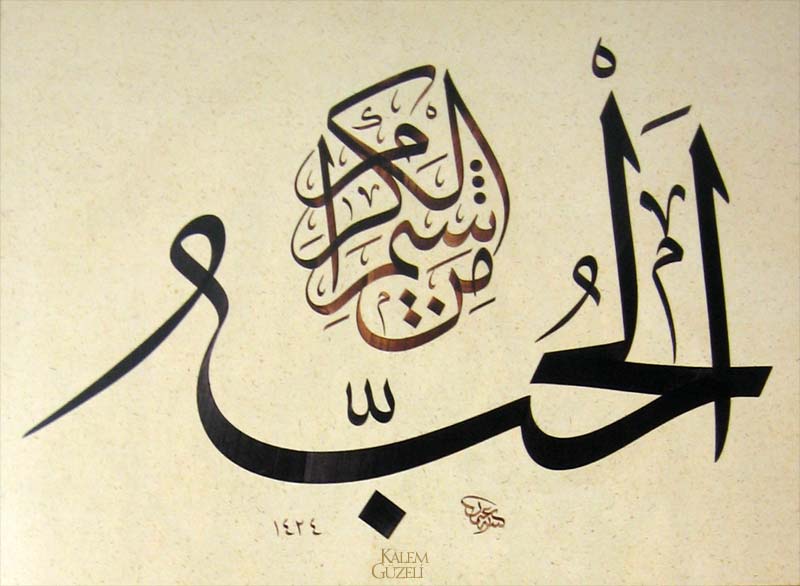 اَلْحُبّ
مِن شِيَمِ الْكِرَامِ
١٤٢٤
KALEM
GÜZELİ